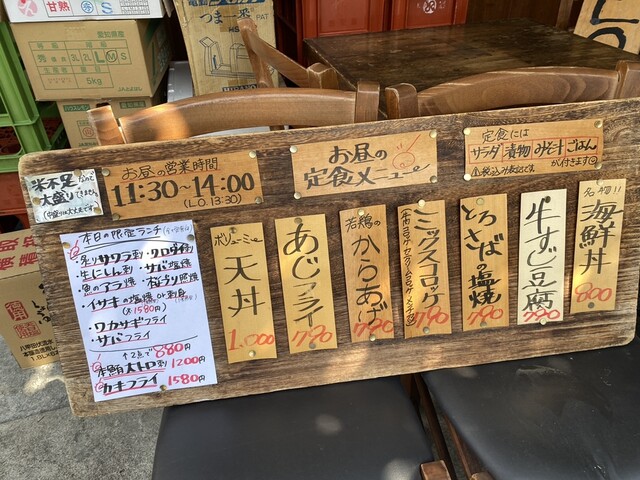 甘熟 S
愛知県産
等級 秀優 3L 2L L M S
生産者
5kg
つま一番 PAT
米不足なので
大盛りできません。
(中盛りは大丈夫です)
お昼の営業時間
11:30~14:00
(L.O.13:30)
お昼の
定食メニュー
定食には
サラダ 漬物 みそ汁 ごはん
が付きます
本日の限定ランチ
・炙りサワラ刺・クロダイ刺
・牛にこみ刺・サバ塩焼
・魚のアラ煮・桜ブリ照焼
・イサキの塩焼 or 刺身
1580円
・ワカサギフライ
・サバフライ
↑2点で880円
本鮪大トロ刺1200円
カキフライ 1580円
ボリューミー
天丼
1.000
あじフライ
790
若鶏の
からあげ
790
ミックスコロッケ
790
とろさばの塩焼
790
牛すじ豆腐
790
名物!!
海鮮丼
800